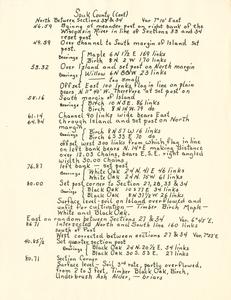 Sauk County (cont)
North Between Sections 33 & 34 Var 7° 10' East
46.09 Same of meander post on right bank of the
Wisconsin River in line of Sections 33 and 34
reset post
49.59 Over Channel to South margin of Island set
post.
Maple 6 N 1½ E 169 links
Birch 8 N 2 W 170 links
53.32 Over Island and set post on North margin
Willow 6 N 80 W 23 links
too small
Offset East 100 links flag in line on plain
bears N. 10° W. Therefore set post on
58.16 South margin of Island
Birch 10 N 3 E 86 links
Birch 8 N 14 W 79 do
61.14 Channel 90 links wide bears East
64.94 through Island and set Post on North
margin
Birch 8 S 79 W 16 links
Birch 6 S 33 E 70 do
offset west 300 links from which flag in line
on left bank bears N. 14° E making distance
over 12.03 Chains bears E.S.E. right angled
width 30.00 Chains
76.87 left bank - set post
White Oak 24 N. 41 E 46 links
White Oak 24 N. 15 W 61 links
80.00 Set post corner to Sections 27, 28, 33 & 34
Black Oak 10 S 37 E 34 links
White Oak 20 N 53 W 38 links
Surface level - soil on Island overflowed and
unfit for cultivation - Timber Birch Maple -
White and Black Oak.
East on random between Sections 27 & 34 Var. 6° 45' E.
80.71 Intersected North and South line 160 links
south of Post
West corrected between sections 27 & 34
40.35½ Set quarter section post
Black Oak 24 N. 20½ E 32 links
Black Oak 30 S. 53 E 27 links
80.71 Section Corner
Surface level - Soil 3rd rate, partly overflowed,
from 2 to 3 feet, Timber Black Oak, Birch,
Underbrush Ash Alder, - briars